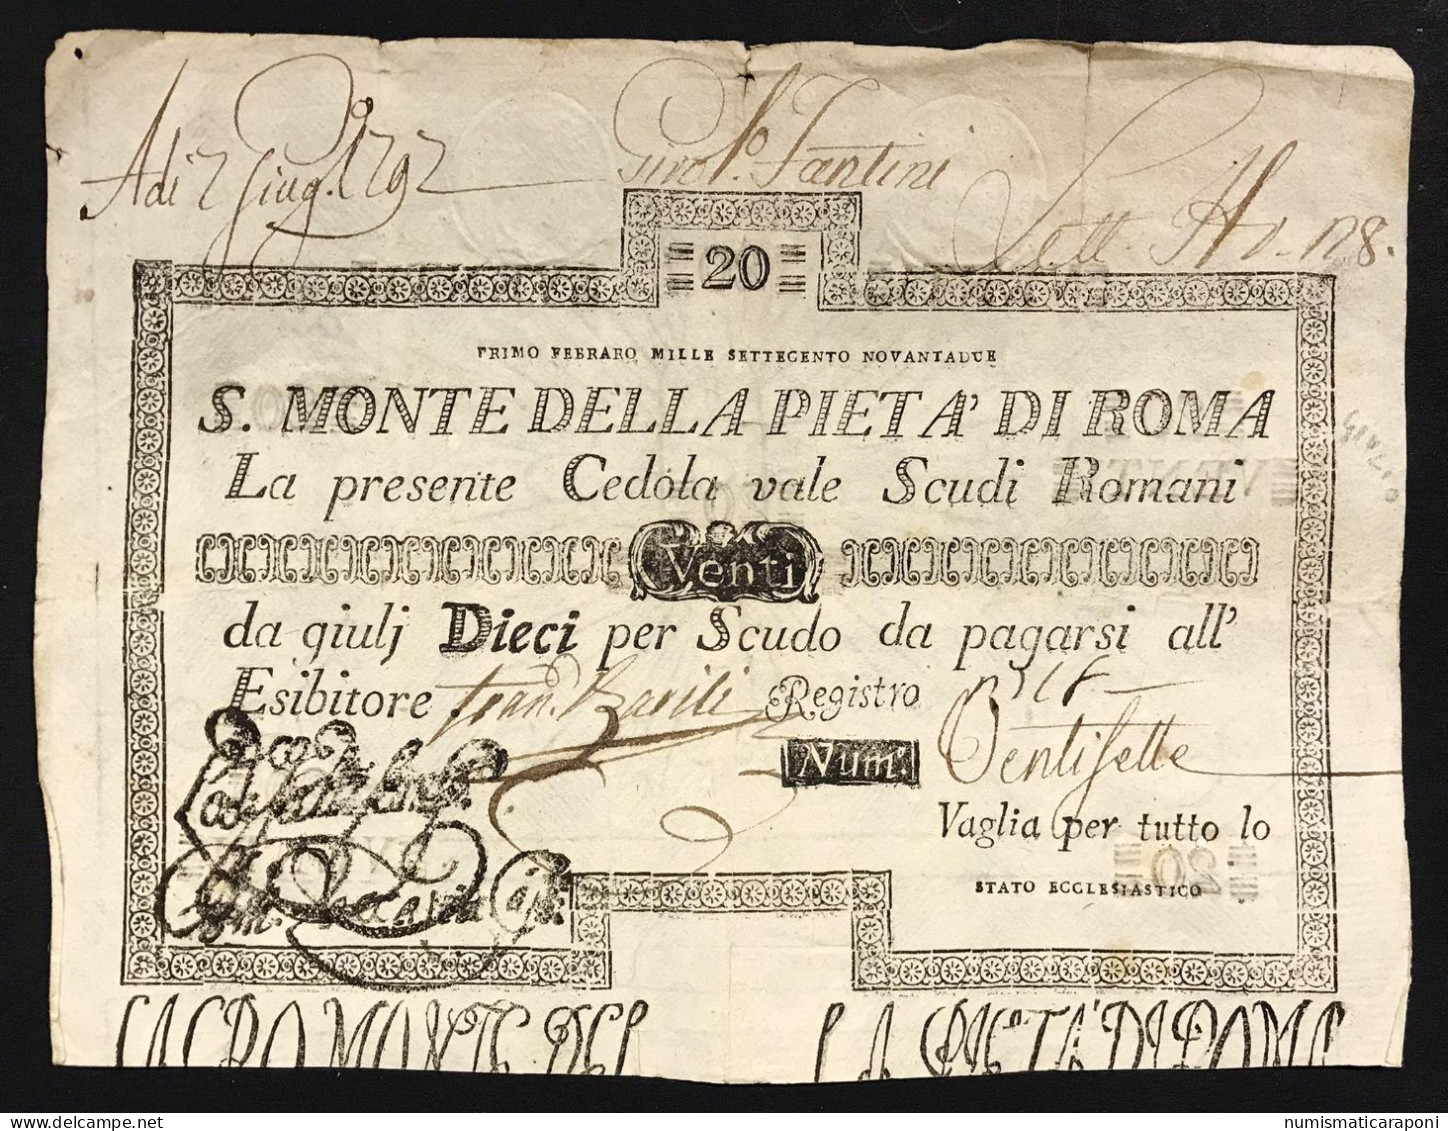 Adi 2 Giug. 1792
Girol.º Fantini
Lett. 128.
20
PRIMO FEBRARO MILLE SETTECENTO NOVANTADUE
S. MONTE DELLA PIETA' DI ROMA
La presente Cedola vale Scudi Romani
Venti
da giulj Dieci per Scudo da pagarsi all'
Esibitore Fran. Barili Registro
Num. Ventisette
Vaglia per tutto lo
20
STATO ECCLESIASTICO
SACRO MONTE DEL LA PIETA' DI ROMA
numismaticaraponi